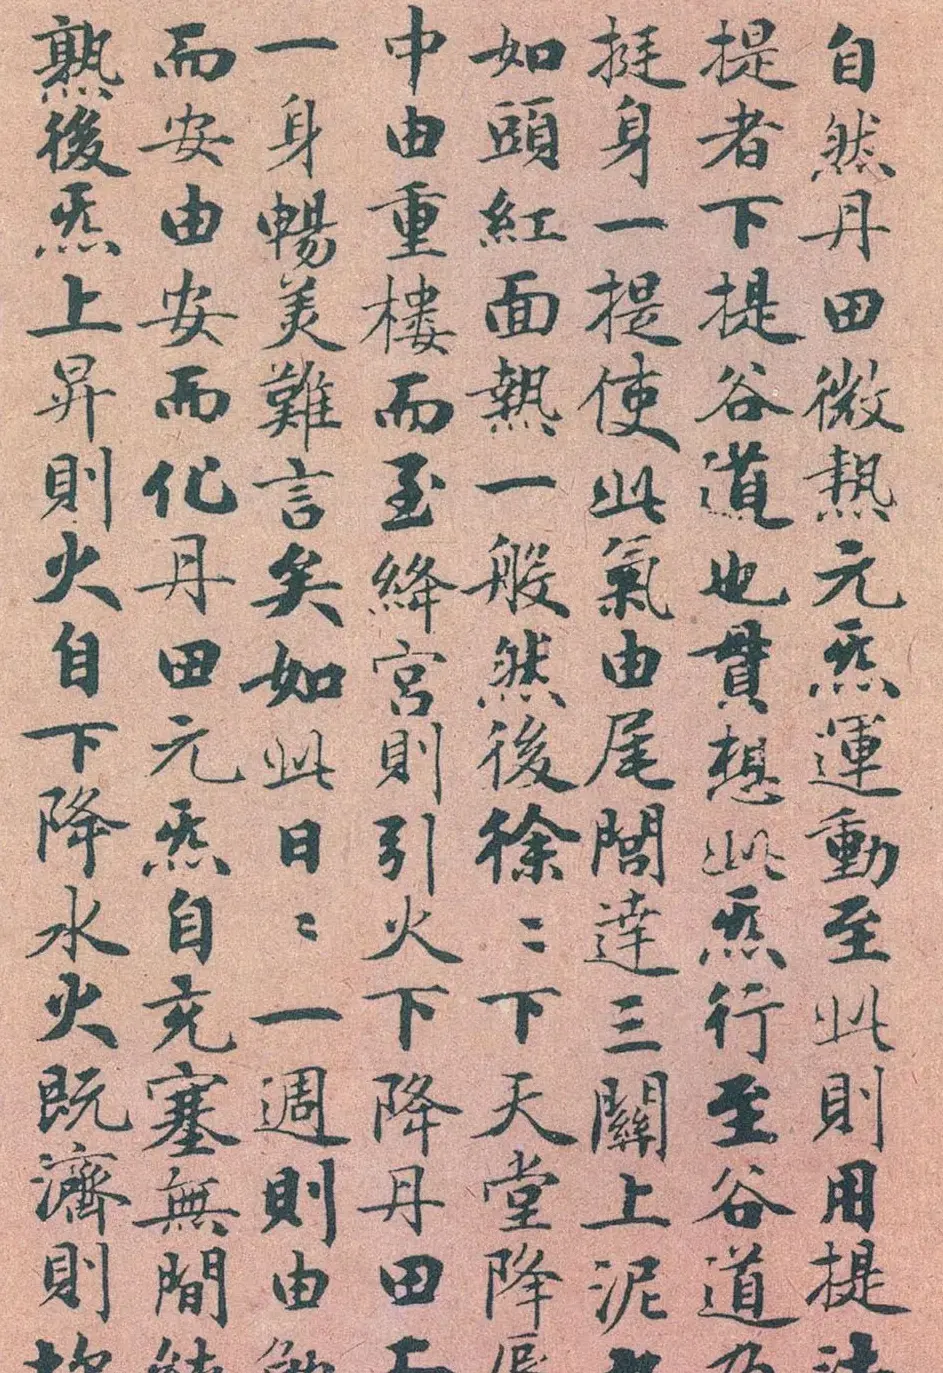 自然丹田微热元炁運動至此則用提法
提者下提谷道也貫想此炁行至谷道乃
挺身一提使此氣由尾閭達三關上泥
如頭紅面熱一般然後徐〻下天堂降
中由重樓而至絳宮則引火下降丹田
一身暢美難言矣如此日〻一週則由
而安由安而化丹田元炁自充塞無間
熟後炁上昇則火自下降水火既濟則